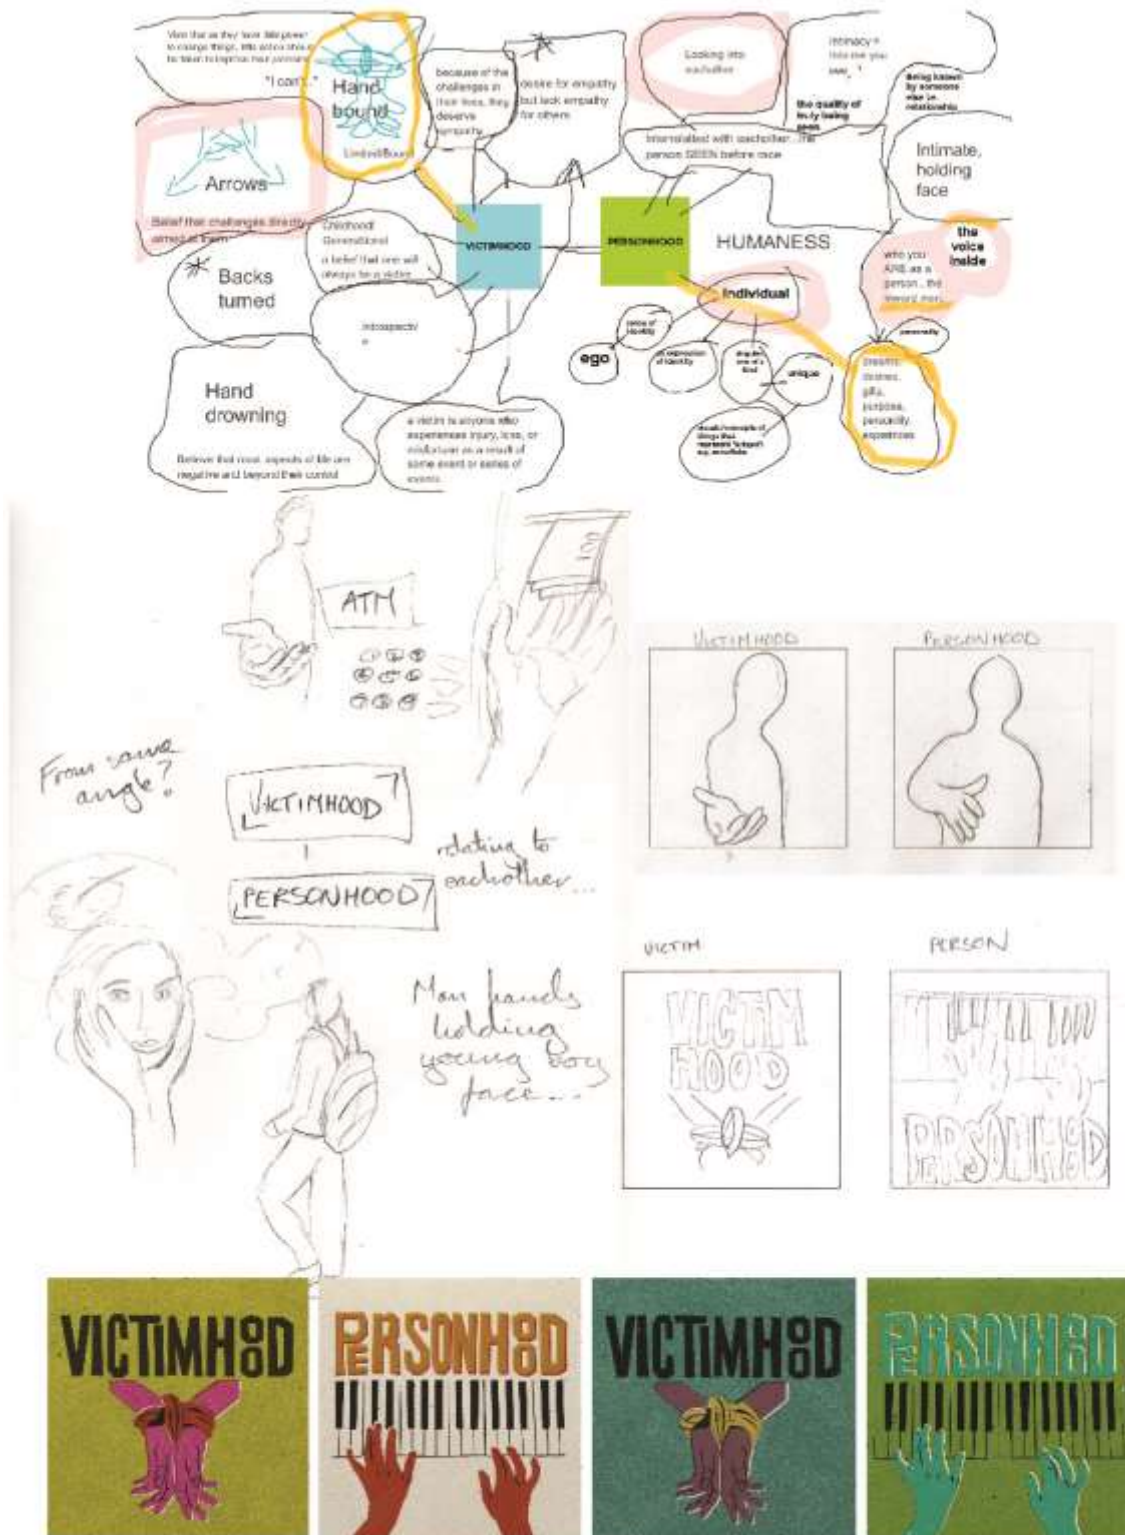 "I can't.."
Hand
bound
Limited/Bound
because of the
challenges in
their lives, they
deserve
sympathy
desire for empathy
but lack empathy
for others
Looking into
eachother
Intimacy =
into me you
see
the quality of
truly being
seen
Being known
by someone
else i.e.
relationship
Interrelated with eachother...the
person SEEN before race
Intimate,
holding
face
Arrows
Belief that challenges directly
aimed at them
Childhood/
Generational
a belief that one will
always be a victim
VICTIMHOOD
PERSONHOOD
HUMANESS
the
voice
inside
who you
ARE as a
person... the
inward man.
Backs
turned
introspectiv
e
Individual
sense of
identity
ego
an expression
of identity
singular
one of a
kind
unique
personality
dreams,
desires,
gifts,
purpose,
personality,
experiences
Hand
drowning
Believe that most aspects of life are
negative and beyond their control
a victim is anyone who
experiences injury, loss, or
misfortune as a result of
some event or series of
events.
ATM
100
From same
angle?
VICTIMHOOD
PERSONHOOD
relating to
eachother...
Man hands
holding
young boy
face...
VICTIMHOOD
PERSONHOOD
VICTIM
PERSON
VICTIM
HOOD
PERSONHOOD
VICTIMHOOD
PERSONHOOD
VICTIMHOOD
PERSONHOOD